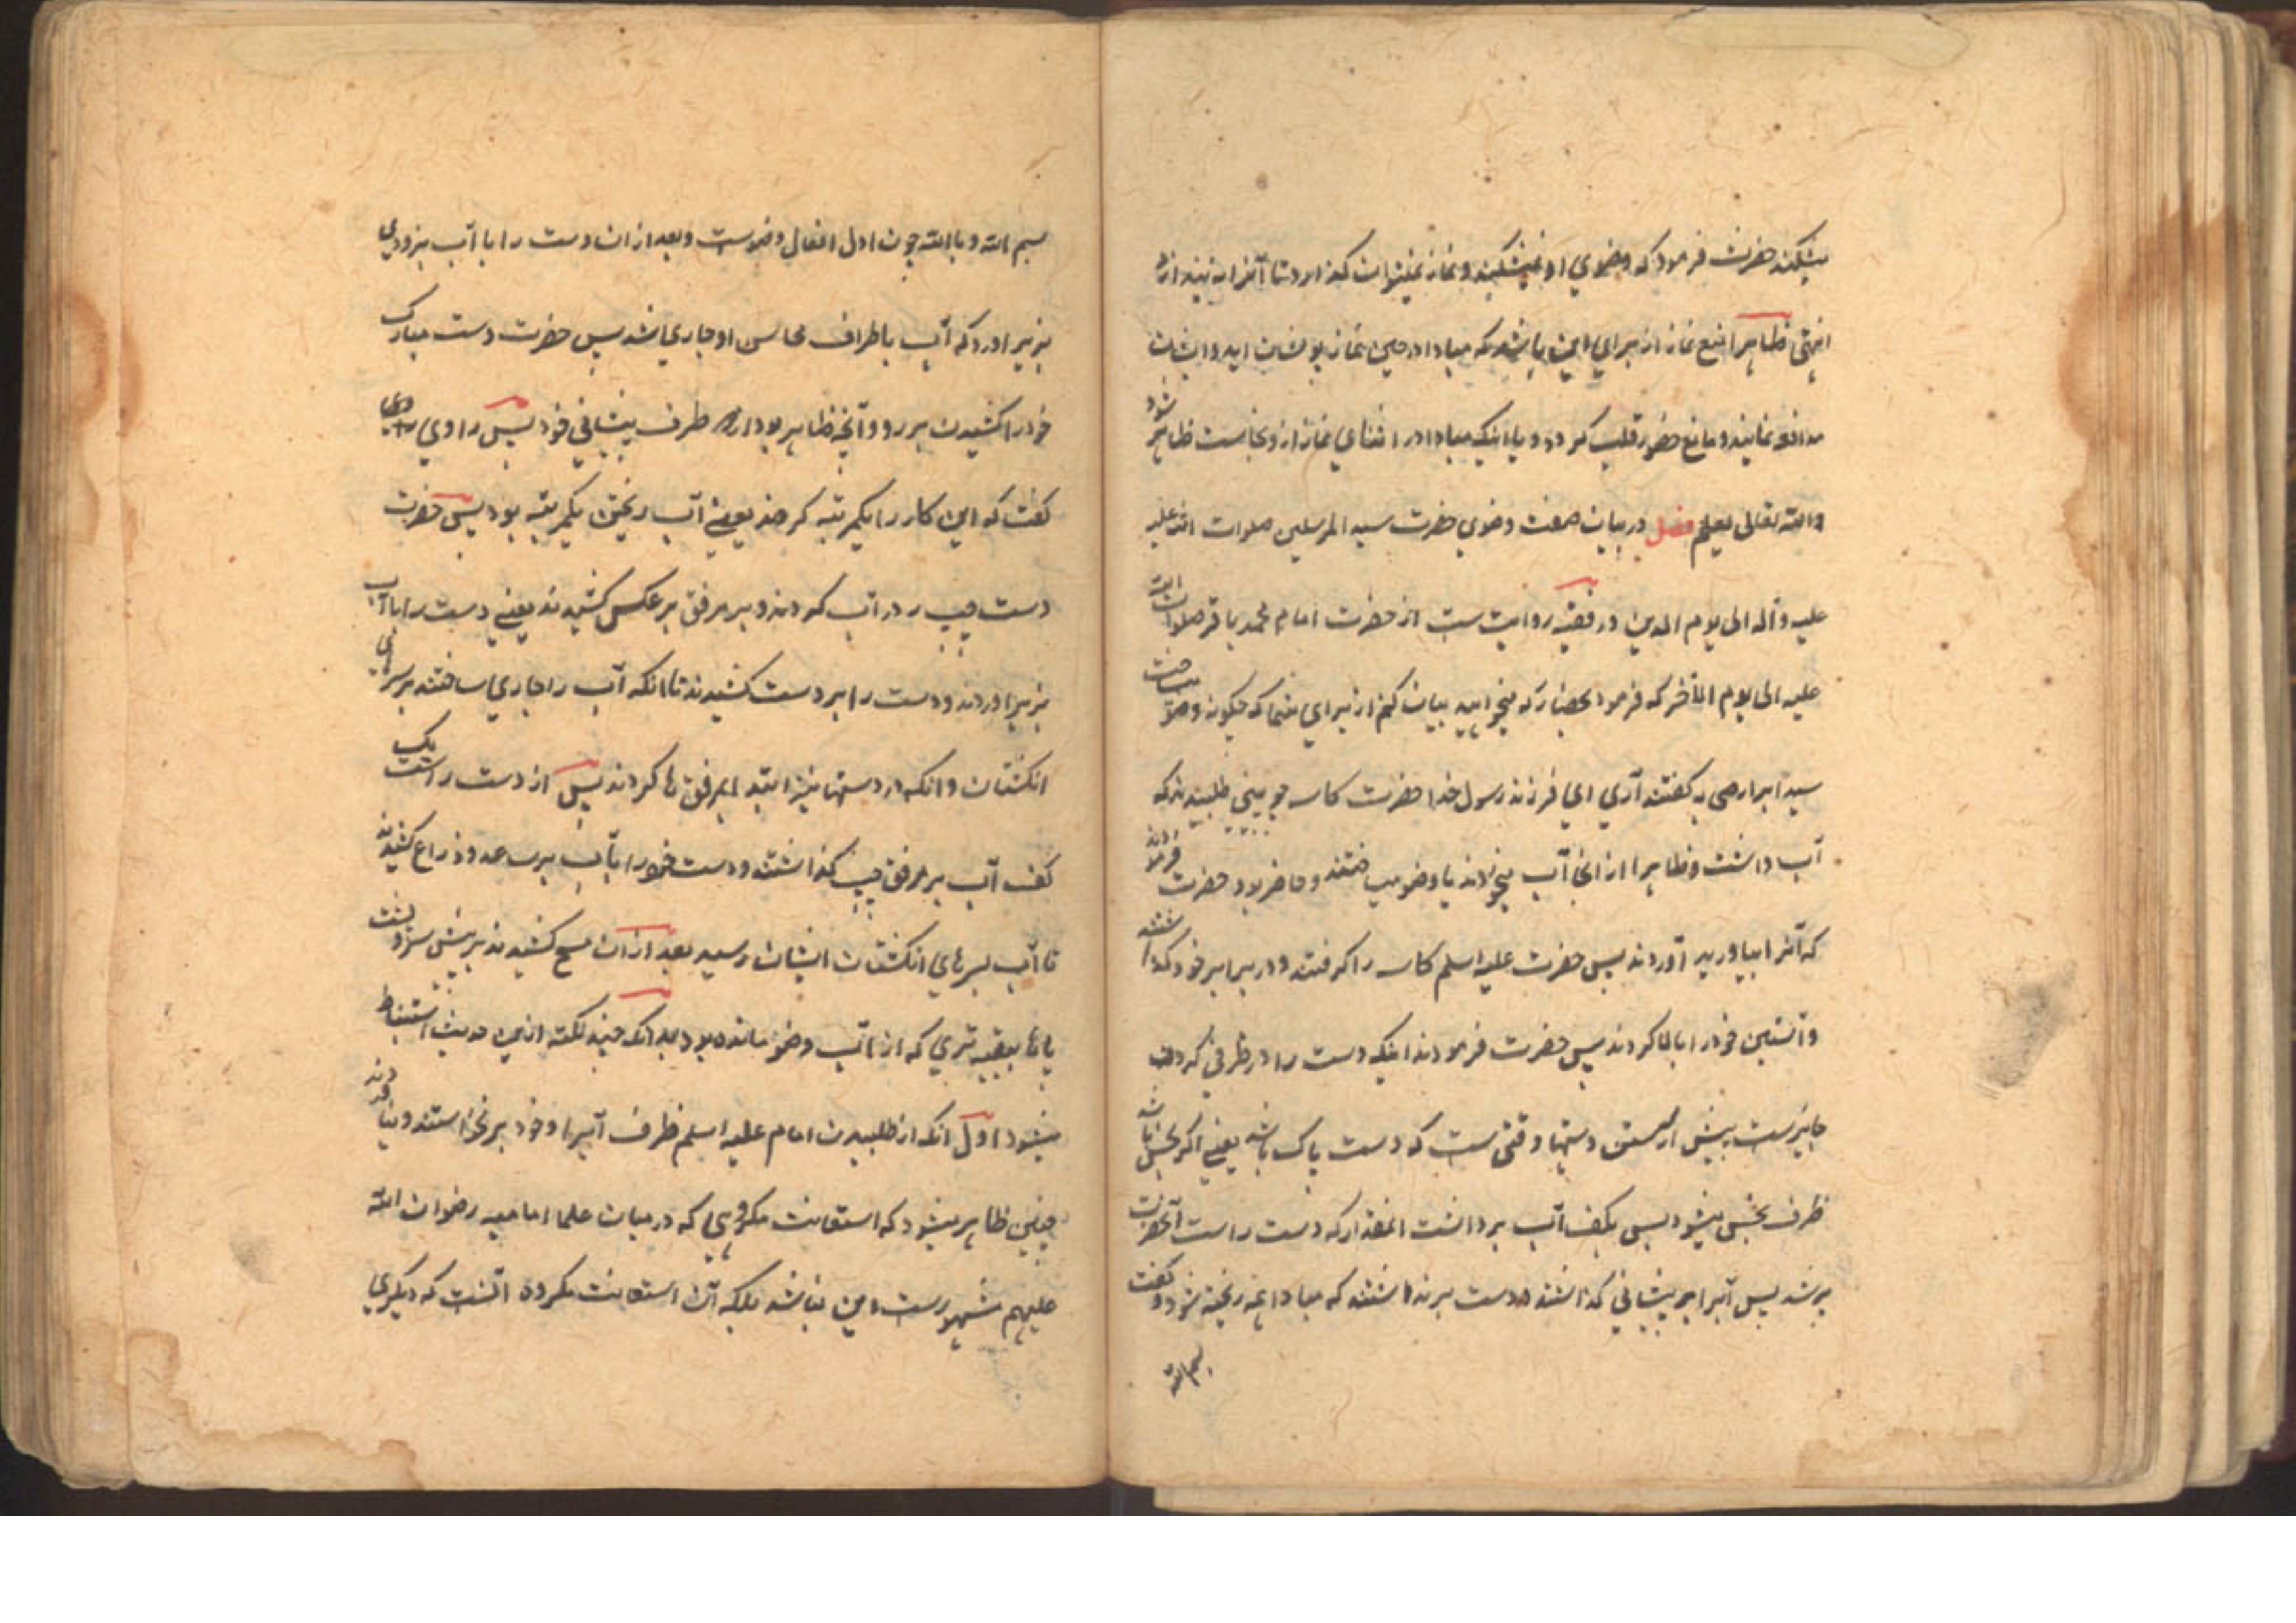 میشکند حضرت فرمود که وضوی او نمیشکند و نماز نمیتوان گذارد تا آنرا نیندازد
انتهی ظاهرا منع نماز از برای این باشد که مبادا در حین نماز بر ایشان
مدافعه نمایند و مانع حضور قلب گردد و یا اینکه مبادا در اثنای نماز از و نجاست ظاهر شود
والله تعالی یعلم فصل در بیان صفت وضوی حضرت سید المرسلین صلوات الله علیه
علیه و آله الی یوم الدین در فقیه روایت ست از حضرت امام محمد باقر صلوات الله
علیه الی یوم الآخر که فرمود بحضار که میخواهید بیان کنم از برای شما که چکونه وضو میساخت
سید ابرار همه گفتند آری ای فرزند رسول خدا حضرت کاسه چوبینی طلبیدند که
آب داشت و ظاهرا از انجا آب میخوردند یا وضو میساختند و حاضر بود حضرت فرمودند
که آنرا بیاورید آوردند پس حضرت علیه اسلم کاسه را گرفتند و در برابر خود گذاشتند
و آستین خود را بالا کردند پس حضرت فرمودند اینکه دست را در ظرفی کردن
جایزست پیش از شستن دستها وقتی ست که دست پاک باشد یعنی اگر نجس باشد
ظرف نجس میشود پس یکف آب برداشت انمقدار که دست راست آنحضرت
پر شد پس آنرا بر پیشانی گذاشتند و دست برنداشتند که مبادا همه ریخته شود و گفت
بسم الله
بسم الله و بالله چون اول افعال وضوست و بعد ازان دست را با آب بزودی
بزیر آورد که آب باطراف محاسن او جاری شد پس حضرت دست مبارک
خود را کشیدند بر رو و آنچه ظاهر بود از طرف پیشانی خود پس راوی
گفت که این کار را یکمرتبه کردند یعنی آب ریختن یکمرتبه بود پس حضرت
دست چپ در آب کردند و بر مرفق بر عکس کشیدند یعنی دست را با آب
بزیر آوردند و دست را بر دست کشیدند تا آنکه آب را جاری ساختند بر سرهای
انکشتان و انکه در دستها نیز ابتدا بمرفق ها کردند پس از دست راست یک
کف آب بر مرفق چپ گذاشتند و دست خود را با آب بر ساعد و ذراع کشیدند
تا آب بسرهای انکشتان ایشان رسید بعد ازان مسح کشیدند بر پیش سر و پشت
پاها ببقیه تری که از آب وضو مانده بود بدانکه چند نکته ازین حدیث استنباط
میشود اول انکه از طلبیدن امام علیه اسلم ظرف آب را و خود بر نخواستند و نیاوردند
چنین ظاهر میشود که استعانت مکروهی که در میان علما امامیه رضوان الله
علیهم مشهورست این نباشد بلکه آن استعانت مکروه آنست که دیگری